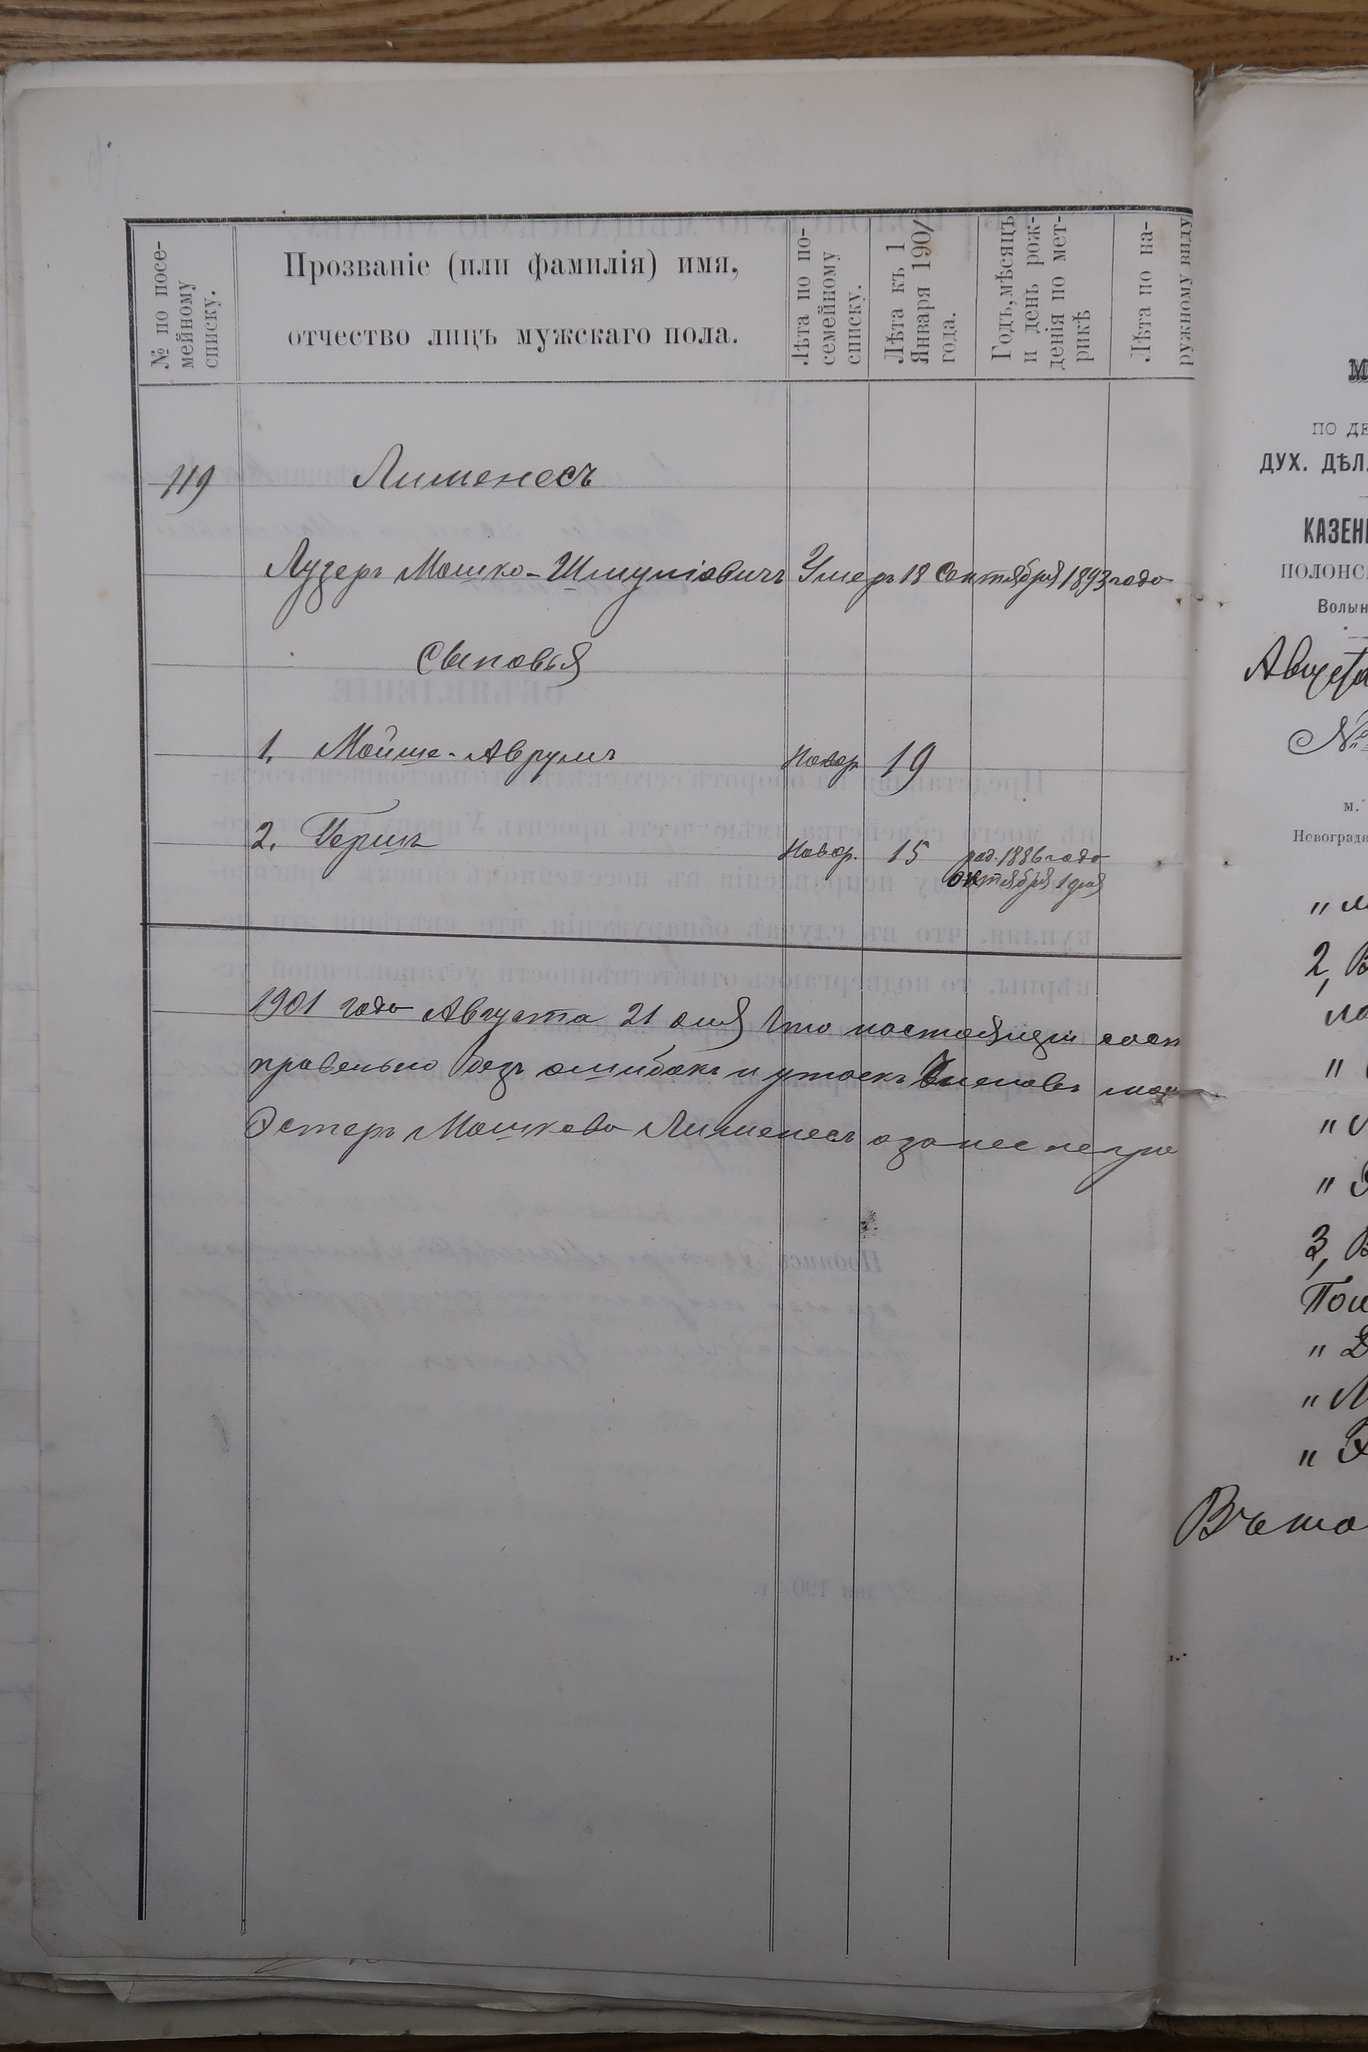 № по посе-
мейному
списку.
Прозваніе (или фамилія) имя,
отчество лицъ мужскаго пола.
Лѣта по по-
семейному
списку.
Лѣта къ 1
Января 1901
года.
Годъ, мѣсяцъ
и день рож-
денія по мет-
рикѣ
Лѣта по на-
ружному виду
119 Лименесъ
Лузеръ Мошко-Шмулiовичъ Умеръ 18 Сентября 1893 года
Сыновья
1. Мойше-Аврумъ Новор 19
2. Гершъ Новор. 15 род. 1886 года
октября 1 дня
1901 года Августа 21 дня Что настоящій
правельно безъ ошибокъ и утоекъ
Эстеръ Мошкова Лименесъ а за нее негра
М
ПО ДЕ
ДУХ. ДѢЛ.
КАЗЕН
ПОЛОНС
Волын
Августа
№
м.
Новоград
2, В
3, В
Пол